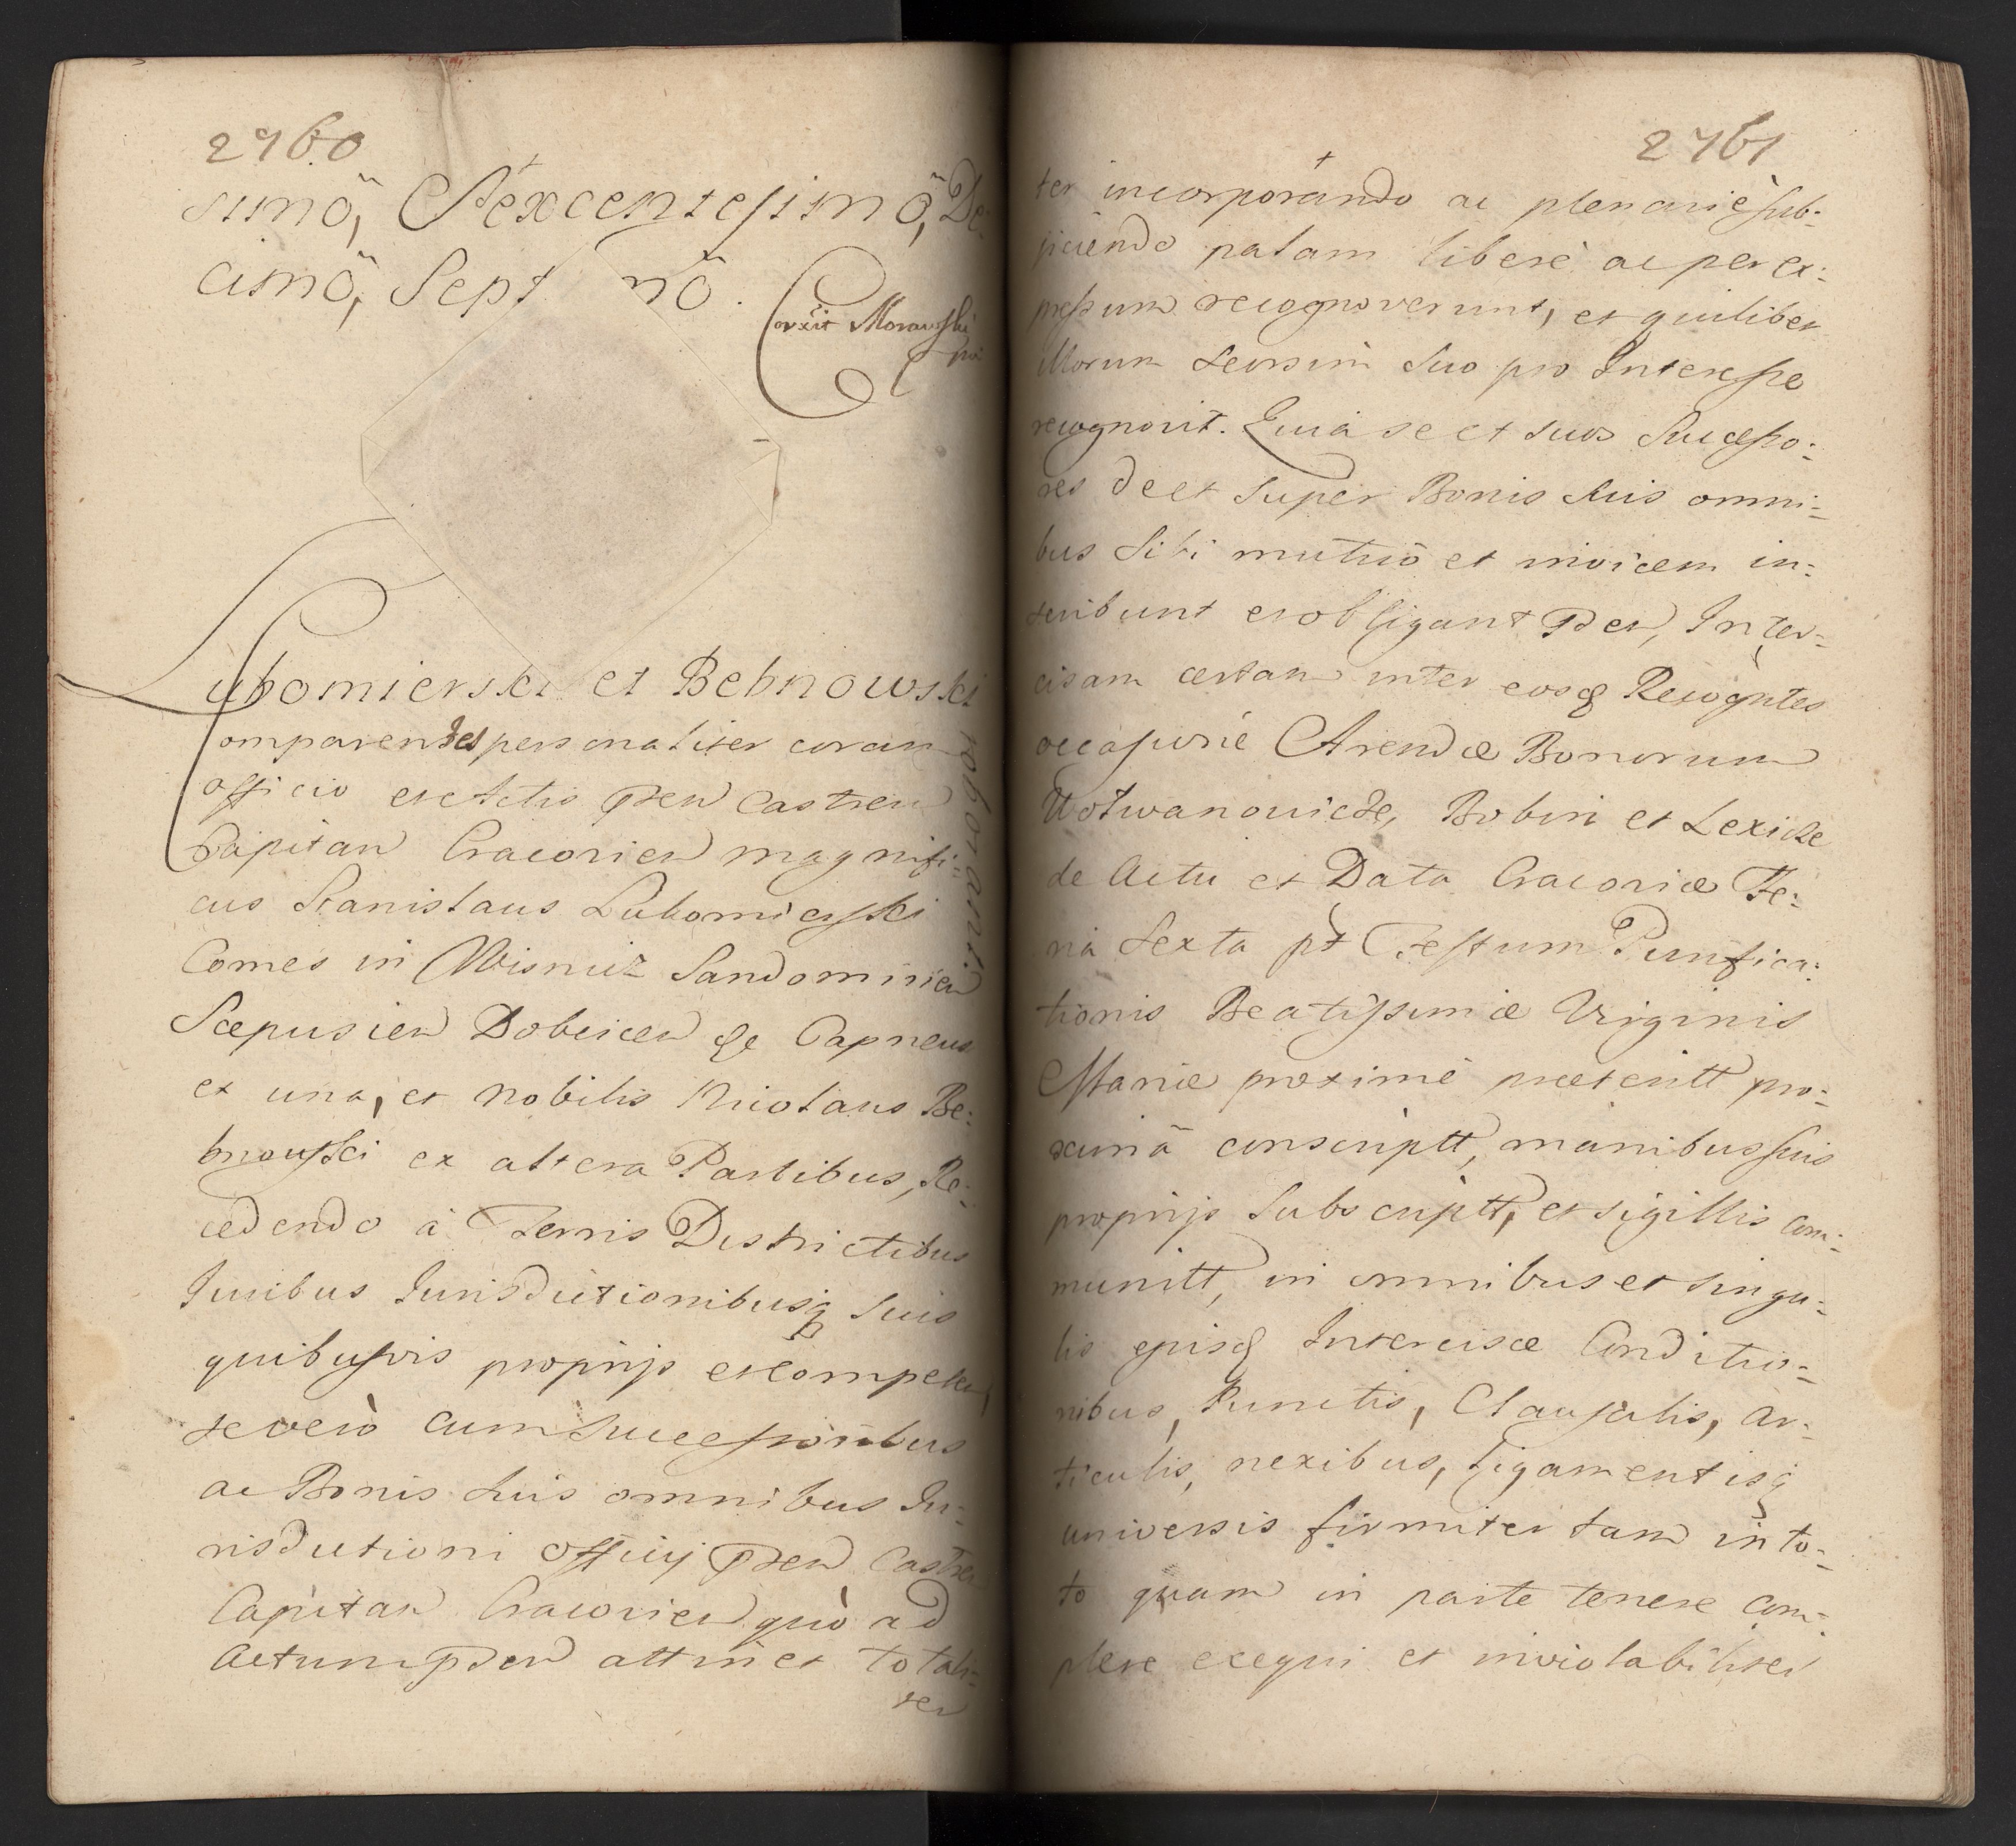 2760
simô, Sexcentesimô, De:
cimô, Sept mô.
Corxit Morawski
mp
Lubomierski et Bebnowski
roborant
Comparentes personaliter coram
officio et Actis pŕen Castren
Capitan Cracovien magnifi:
cus Stanislaus Lubomierski
Comes in Wisnicz Sandomirien
Scepusien Dobcicen &c Capneus
ex una, et Nobilis Nicolaus Be:
bnowski ex altera Partibus, Re:
cedendo à Terris Districtibus
Juribus Jurisdictionibusq suis
quibusvis proprijs et competen,
se verò cum Successoribus
ac Bonis suis omnibus Ju:
risdictioni Officij pŕen Castren
Capitan Cracovien quò ad
Actum pŕen attinet totali:
ter
2761
ter incorporando ac plenariè sub:
jiciendo palam liberè ac per ex:
pressum recognoverunt, et quilibet
Illorum seorsim suo pro Interesse
recognovit. Quia se et suos Successo:
res de et super Bonis suis omni:
bus sibi mutuò et invicem in:
scribunt et obligant pŕen, Inter:
cisam certam inter eosq Recogntes
occasione Arendæ Bonorum
Wotwanowicze, Bobin et Lexicze
de Actu et Data Cracoviæ Fe:
ria Sexta pt Festum Purifica:
tionis Beatissimæ Virginis
Mariæ proximè præteritt pro:
ximâ conscriptt, manibus suis
proprijs subscriptt, et sigillis com:
munitt, in omnibus et singu:
lis ejusq Intercisæ Conditio:
nibus, Punctis, Clausulis, Ar:
ticulis, nexibus, ligamentisq
universis firmiter tam in to:
to quam in parte tenere com:
plere exequi et inviolabiliter